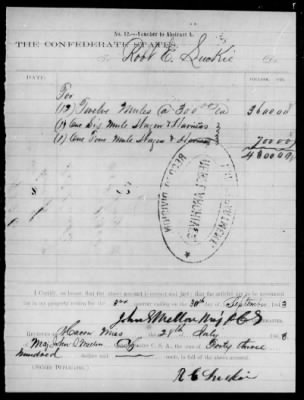 No. 12.—Voucher to Abstract A.
THE CONFEDERATE STATES,
To Robt E.
DATE. DOLLARS. CTS.
For
(12) Twelve Mules @ 300.00 ea 3600.00
(1) One Six Mule Wagon & Harness
(1) One Four Mule Wagon & Harness 700.00
4300.00
$ $
RECORD DIVISION
WAR DEPARTMENT
I Certify, on honor, that the above account is correct and just; that the articles are to be accounted
for on my property return for the 3rd quarter ending on the 30th September 1863
John
Received at Macon Miss 28th July 1863
Maj John C Mellon C. S. A., the sum of Forty three
hundred dollars and cents, in full of the above account.
(SIGNED DUPLICATES.)
R E